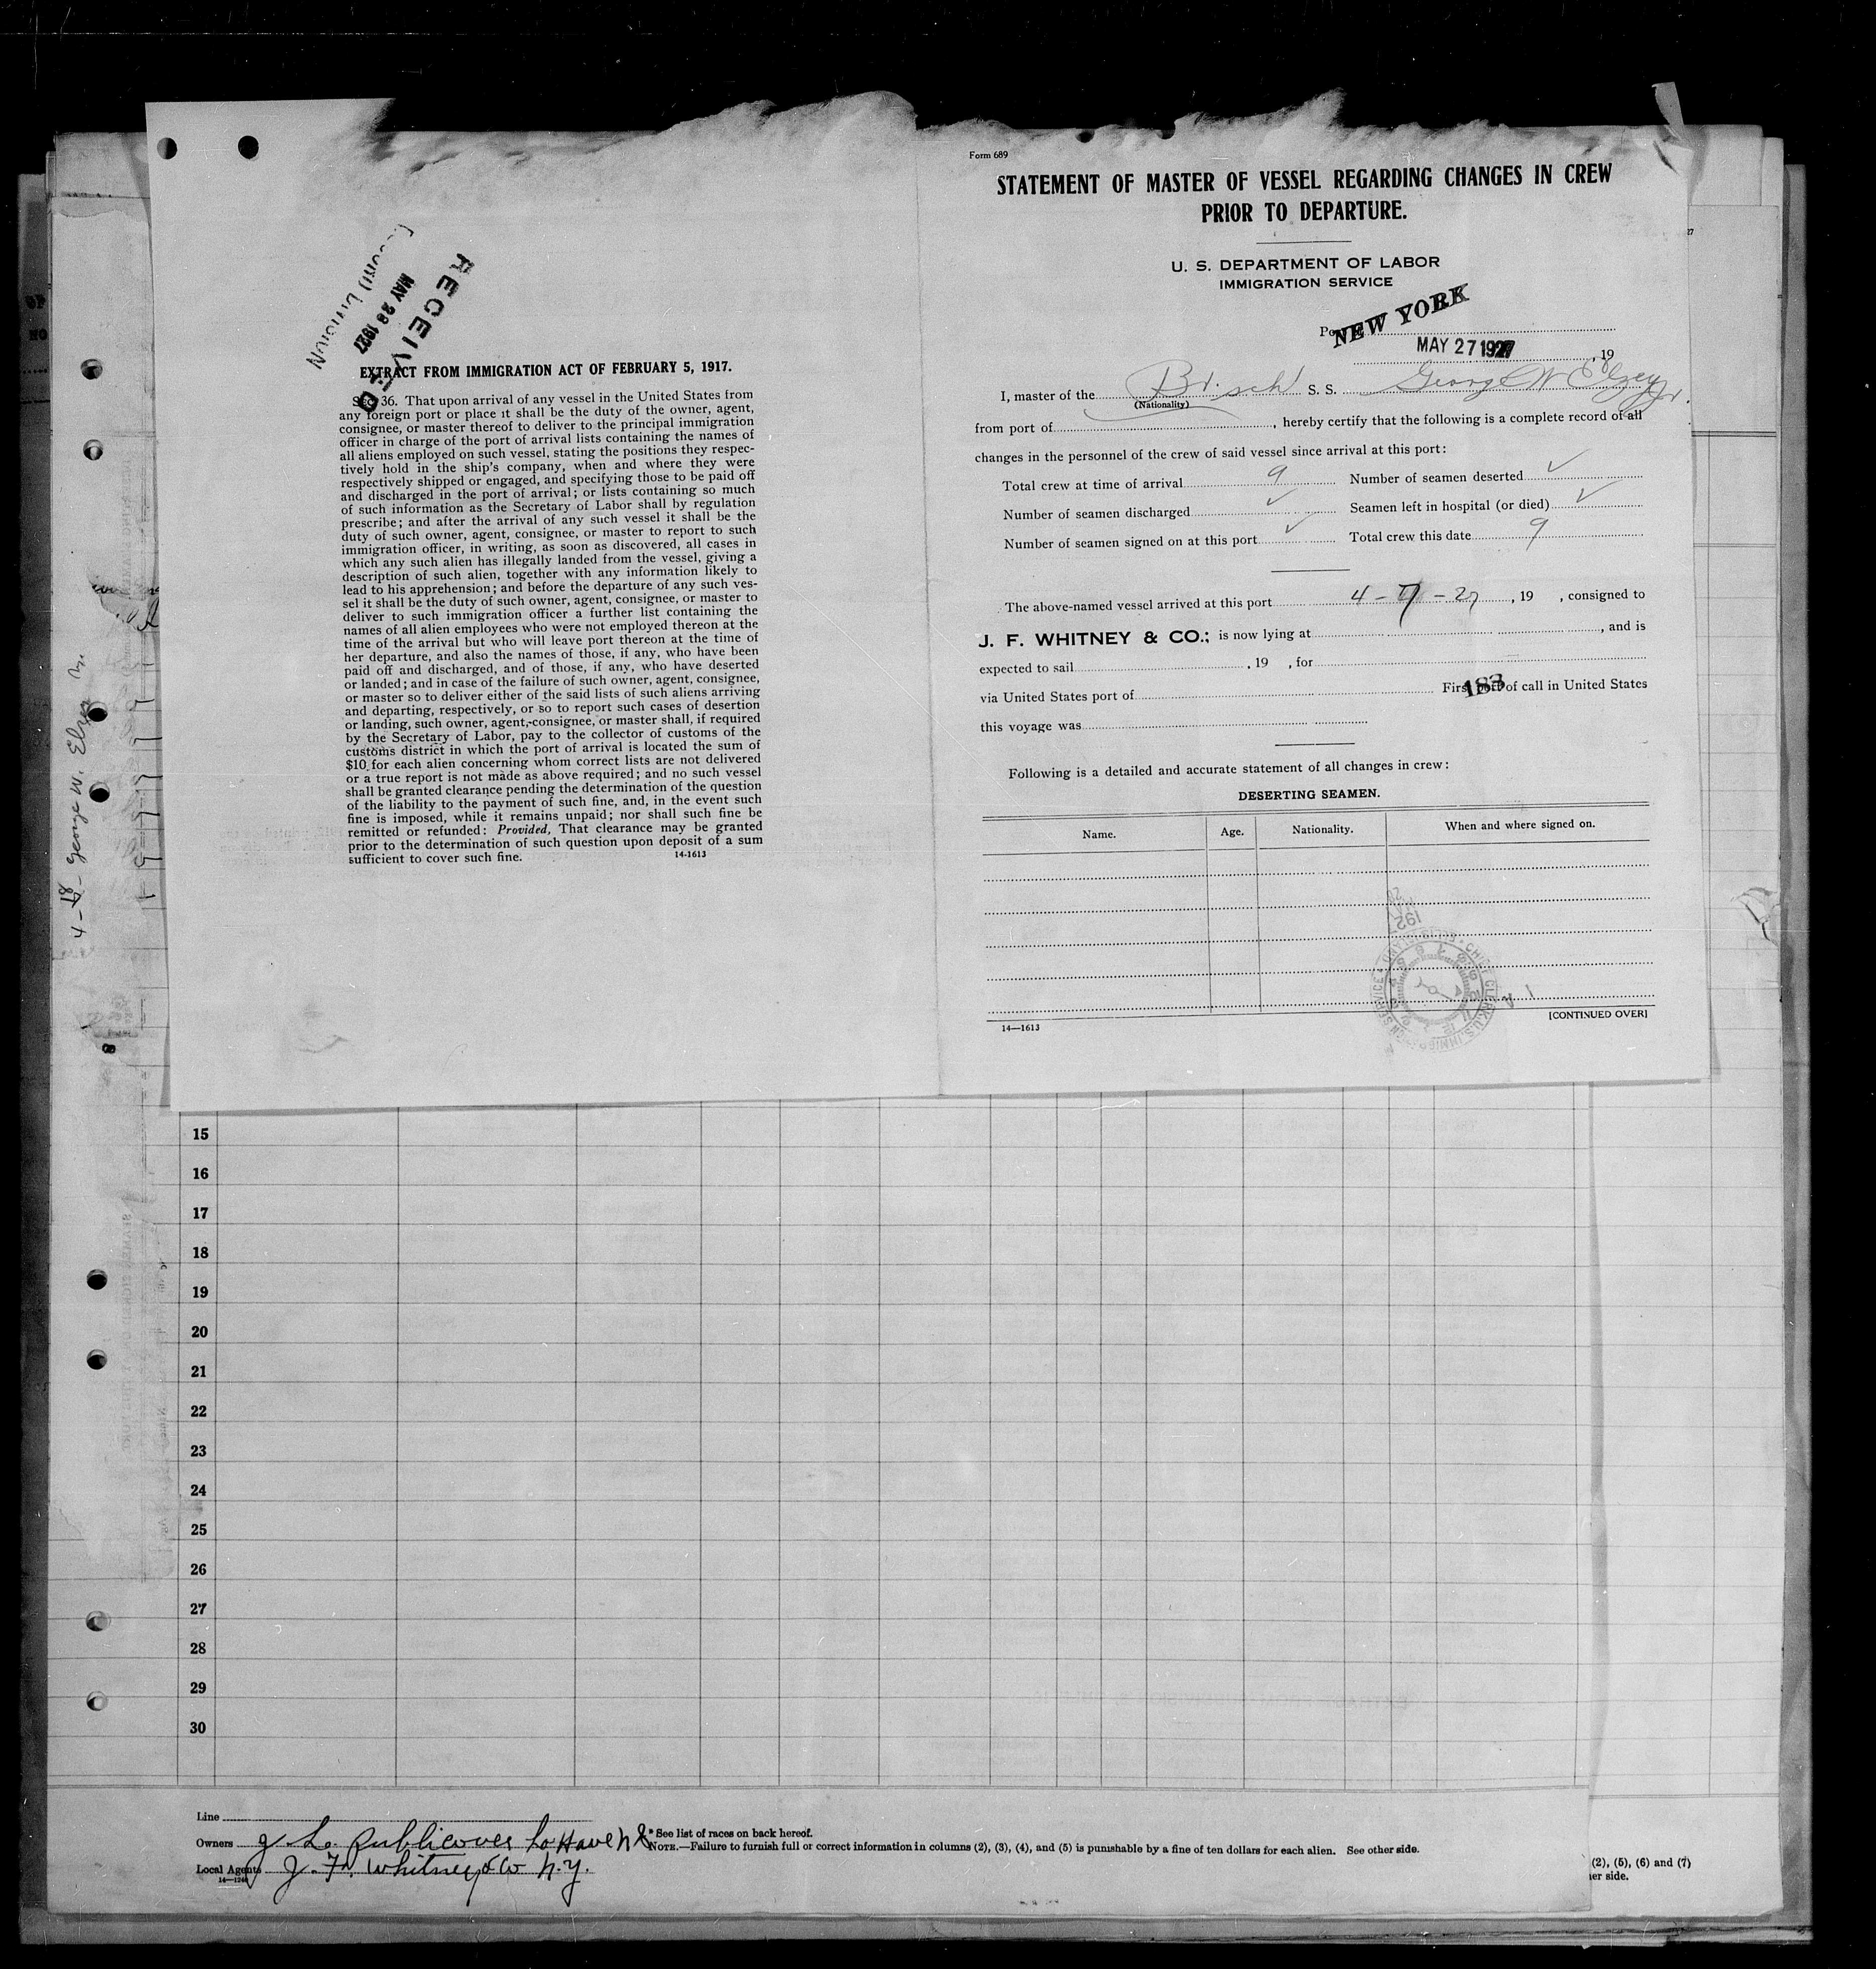 RECEIVED
MAY 28 1927
EXTRACT FROM IMMIGRATION ACT OF FEBRUARY 5, 1917.
Sec. 36. That upon arrival of any vessel in the United States from
any foreign port or place it shall be the duty of the owner, agent,
consignee, or master thereof to deliver to the principal immigration
officer in charge of the port of arrival lists containing the names of
all aliens employed on such vessel, stating the positions they respec-
tively hold in the ship's company, when and where they were
respectively shipped or engaged, and specifying those to be paid off
and discharged in the port of arrival; or lists containing so much
of such information as the Secretary of Labor shall by regulation
prescribe; and after the arrival of any such vessel it shall be the
duty of such owner, agent, consignee, or master to report to such
immigration officer, in writing, as soon as discovered, all cases in
which any such alien has illegally landed from the vessel, giving a
description of such alien, together with any information likely to
lead to his apprehension; and before the departure of any such ves-
sel it shall be the duty of such owner, agent, consignee, or master to
deliver to such immigration officer a further list containing the
names of all alien employees who were not employed thereon at the
time of the arrival but who will leave port thereon at the time of
her departure, and also the names of those, if any, who have been
paid off and discharged, and of those, if any, who have deserted
or landed; and in case of the failure of such owner, agent, consignee,
or master so to deliver either of the said lists of such aliens arriving
and departing, respectively, or so to report such cases of desertion
or landing, such owner, agent, consignee, or master shall, if required
by the Secretary of Labor, pay to the collector of customs of the
customs district in which the port of arrival is located the sum of
$10 for each alien concerning whom correct lists are not delivered
or a true report is not made as above required; and no such vessel
shall be granted clearance pending the determination of the question
of the liability to the payment of such fine, and, in the event such
fine is imposed, while it remains unpaid; nor shall such fine be
remitted or refunded: Provided, That clearance may be granted
prior to the determination of such question upon deposit of a sum
sufficient to cover such fine. 14-1613
Form 689
STATEMENT OF MASTER OF VESSEL REGARDING CHANGES IN CREW
PRIOR TO DEPARTURE.
U. S. DEPARTMENT OF LABOR
IMMIGRATION SERVICE
NEW YORK
MAY 27 1927, 19
I, master of the Br. sch S. S. George W Elzey Jr.
(Nationality)
from port of, hereby certify that the following is a complete record of all
changes in the personnel of the crew of said vessel since arrival at this port:
Total crew at time of arrival 9 Number of seamen deserted ✓
Number of seamen discharged ✓ Seamen left in hospital (or died) ✓
Number of seamen signed on at this port ✓ Total crew this date 9
The above-named vessel arrived at this port 4 - - 27, 19 , consigned to
J. F. WHITNEY & CO.; is now lying at, and is
expected to sail, 19 , for
via United States port of First port of call in United States
183
this voyage was
Following is a detailed and accurate statement of all changes in crew:
DESERTING SEAMEN.
Name. Age. Nationality. When and where signed on.
14—1613 [CONTINUED OVER]
George W. Elzey Jr.
8
15
16
17
18
19
20
21
22
23
24
25
26
27
28
29
30
Line
Owners J. L. Publicover La Have N S
Local Agents J. F. Whitney & Co N.Y.
* See list of races on back hereof.
NOTE.—Failure to furnish full or correct information in columns (2), (3), (4), and (5) is punishable by a fine of ten dollars for each alien. See other side.
(2), (5), (6) and (7)
er side.